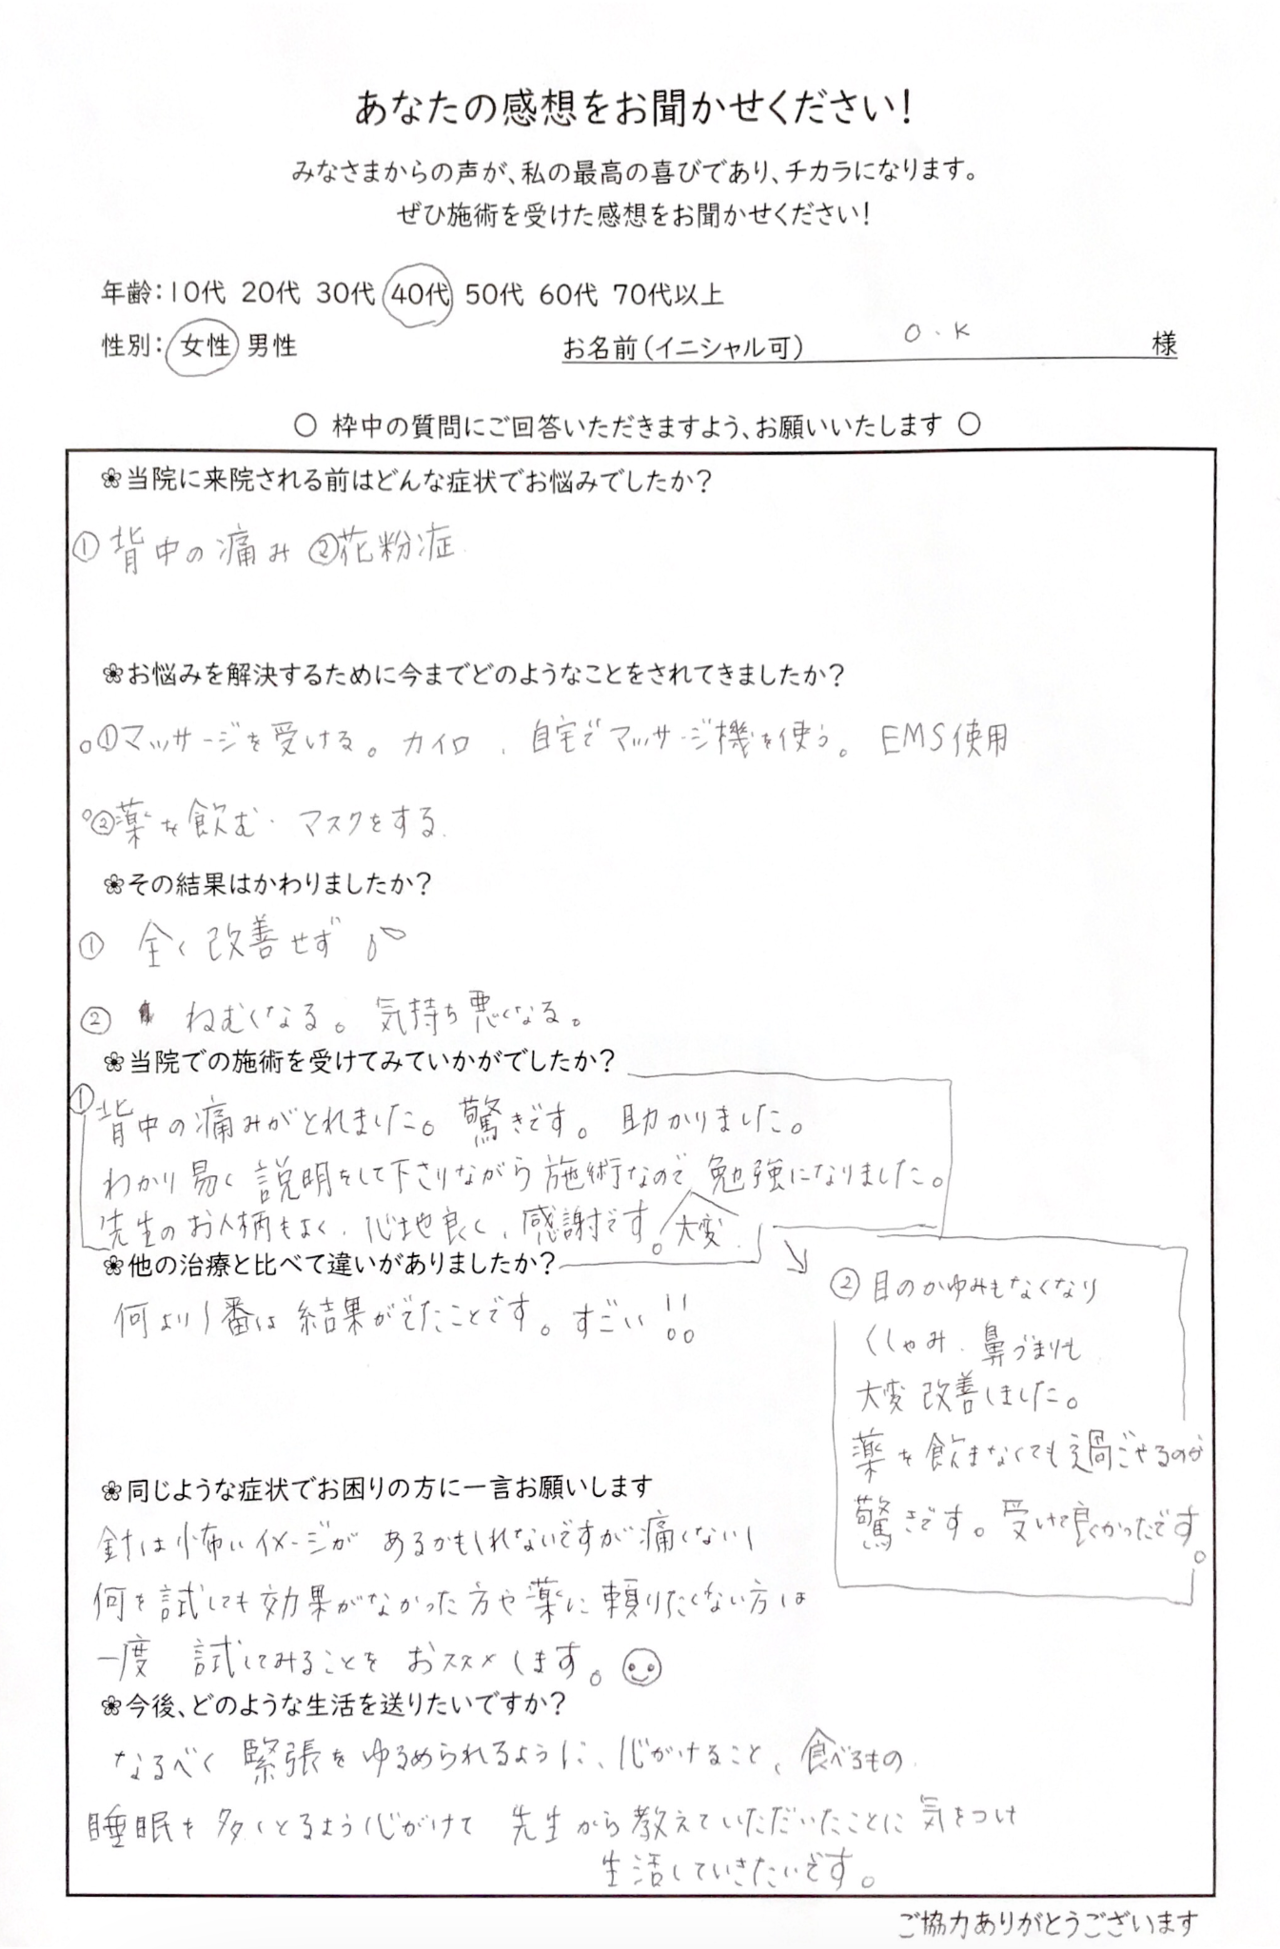 あなたの感想をお聞かせください！
みなさまからの声が、私の最高の喜びであり、チカラになります。
ぜひ施術を受けた感想をお聞かせください！
年齢：10代 20代 30代 40代 50代 60代 70代以上
性別： 女性 男性
お名前（イニシャル可） O.K 様
○ 枠中の質問にご回答いただきますよう、お願いいたします ○
❀当院に来院される前はどんな症状でお悩みでしたか？
①背中の痛み ②花粉症
❀お悩みを解決するために今までどのようなことをされてきましたか？
○①マッサージを受ける。カイロ、自宅でマッサージ機を使う。EMS使用
○②薬を飲む・マスクをする
❀その結果はかわりましたか？
① 全く改善せず
② ねむくなる。気持ち悪くなる。
❀当院での施術を受けてみていかがでしたか？
①背中の痛みがとれました。驚きです。助かりました。
わかり易く説明をして下さりながら施術なので勉強になりました。
先生のお人柄もよく、心地良く、感謝です。大変
❀他の治療と比べて違いがありましたか？
何より1番は結果がでたことです。すごい!!
②目のかゆみもなくなり
くしゃみ、鼻づまりも
大変改善しました。
薬を飲まなくても過ごせるのが
驚きです。受けて良かったです。
❀同じような症状でお困りの方に一言お願いします
針は怖いイメージがあるかもしれないですが痛くないし
何を試しても効果がなかった方や薬に頼りたくない方は
一度 試してみることをおススメします。
❀今後、どのような生活を送りたいですか？
なるべく緊張をゆるめられるように、心がけること、食べるもの
睡眠を多くとるよう心がけて 先生から教えていただいたことに気をつけ
生活していきたいです。
ご協力ありがとうございます